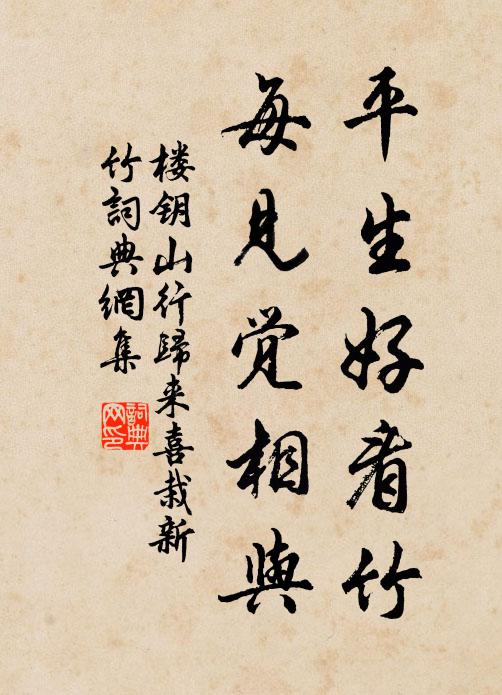 平生好看竹
每见觉相與
楼钥山行歸来喜栽新
竹詞典網集
詞典网印